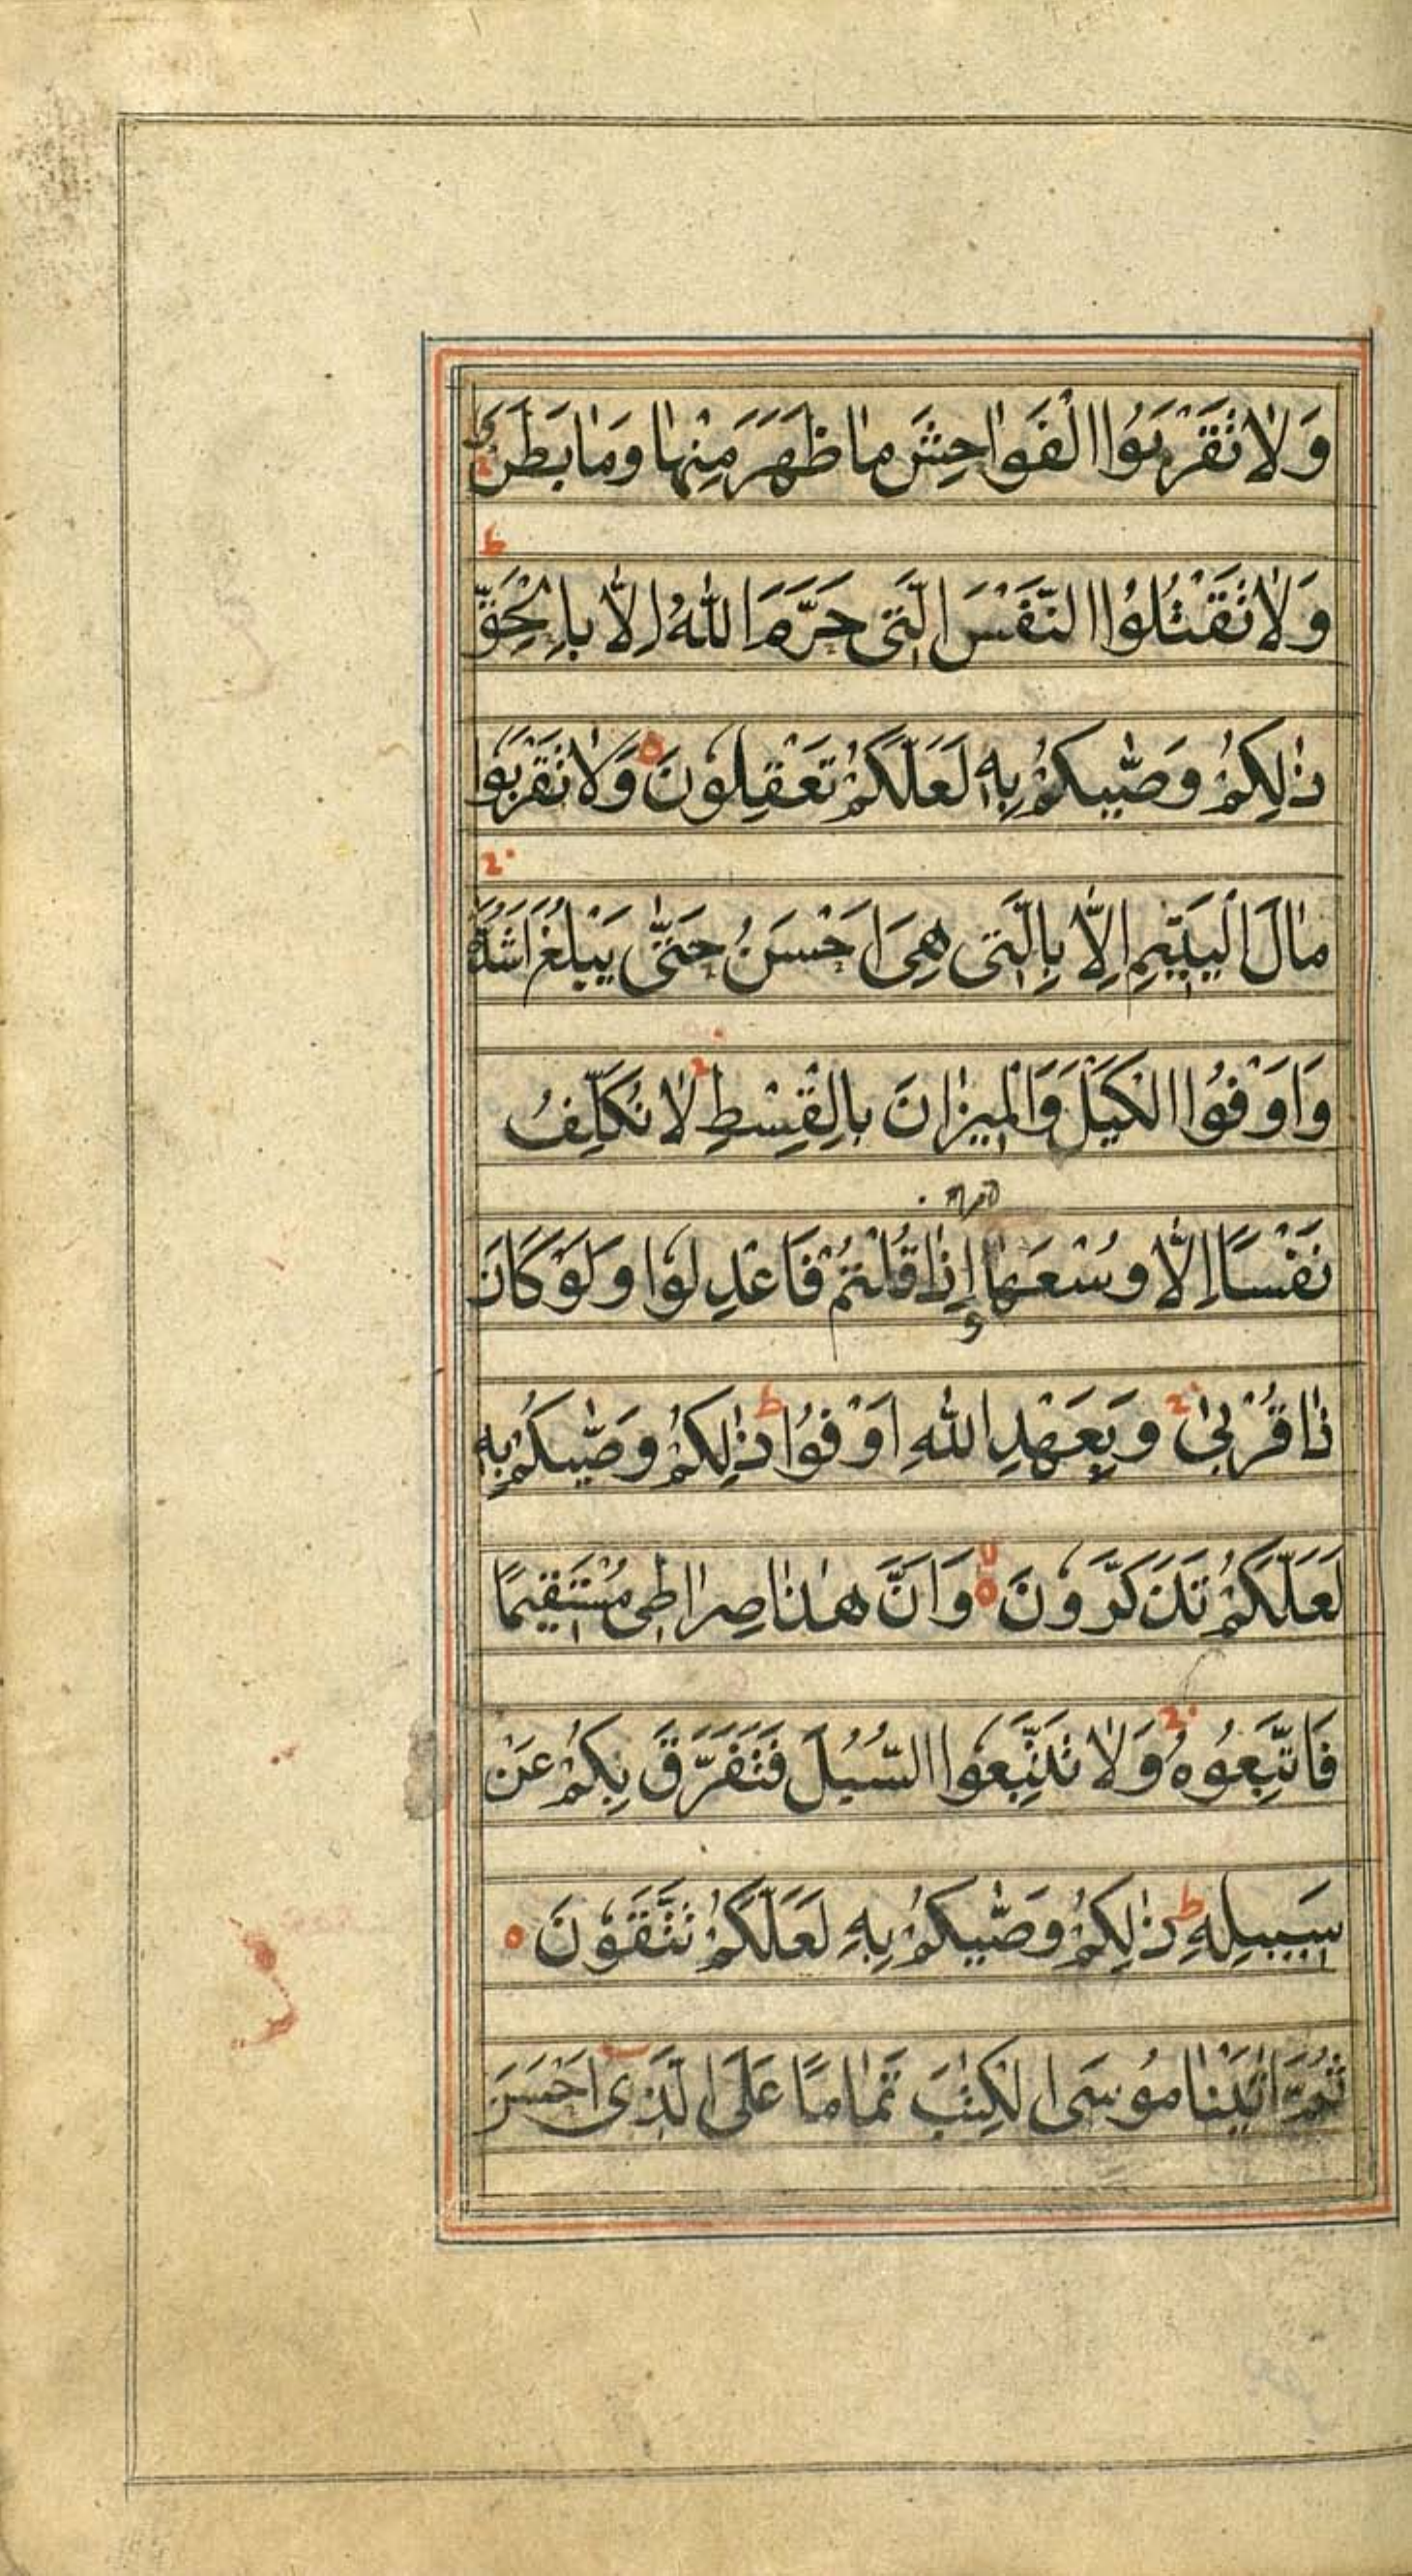 وَلاٰ تَقْرَبُوا الْفَوٰاحِشَ مٰا ظَهَرَ مِنْهٰا وَمٰا بَطَنَ ج
وَلاٰ تَقْتُلُوا النَّفْسَ الَّتِى حَرَّمَ اللّٰهُ اِلاّٰ بِالْحَقِّ ط
ذٰلِكُمْ وَصّٰيكُمْ بِهٖ لَعَلَّكُمْ تَعْقِلُونَ ه وَلاٰ تَقْرَبُوا
مٰالَ الْيَتِيْمِ اِلاّٰ بِالَّتِى هِىَ اَحْسَنُ حَتّٰى يَبْلُغَ اَشُدَّهُ ج
وَاَوْفُوا الْكَيْلَ وَالْمِيزٰانَ بِالْقِسْطِ ج لاٰ نُكَلِّفُ
نَفْسًا اِلاّٰ وُسْعَهٰا و اِذٰا قُلْتُمْ فَاعْدِلُوا وَلَوْ كَانَ
ذٰا قُرْبىٰ ج وَبِعَهْدِ اللّٰهِ اَوْفُوا ط ذٰلِكُمْ وَصّٰيكُمْ بِهٖ
لَعَلَّكُمْ تَذَكَّرُونَ ه لا وَاَنَّ هٰذٰا صِرٰاطِى مُسْتَقِيمًا
فَاتَّبِعُوهُ ج وَلاٰ تَتَّبِعُوا السُّبُلَ فَتَفَرَّقَ بِكُمْ عَنْ
سَبِيلِهِ ط ذٰلِكُمْ وَصّٰيكُمْ بِهِ لَعَلَّكُمْ تَتَّقُونَ ه
ثُمَّ اٰتَيْنٰا مُوسَى الْكِتٰبَ تَمٰامًا عَلَى الَّذِى اَحْسَنَ